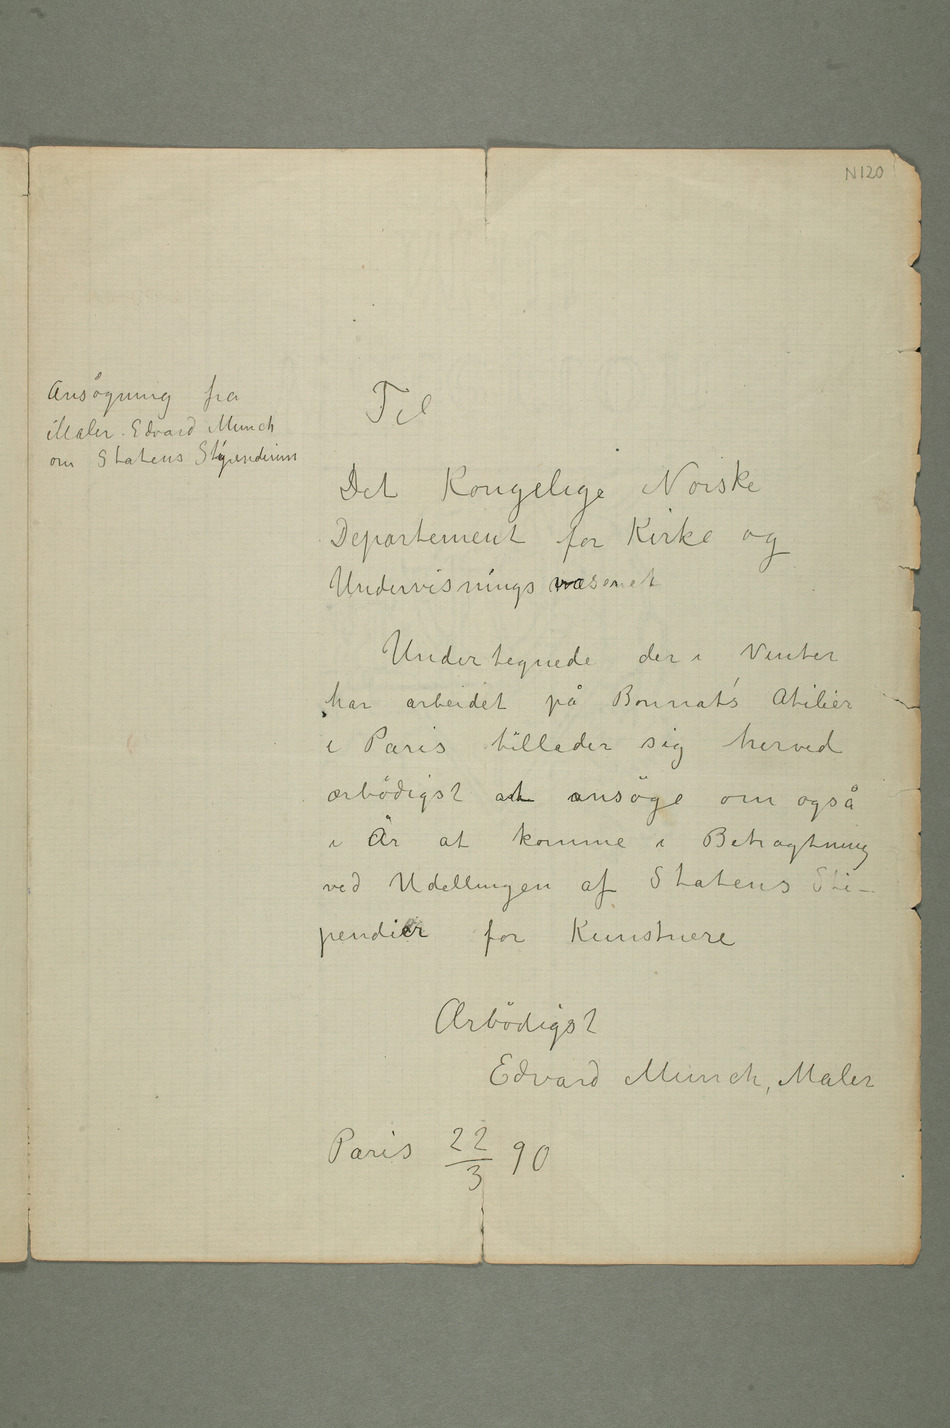 N120
Ansögning fra
Maler Edvard Munch
om Statens Stipendium
Til
Det Kongelige Norske
Departement for Kirke og
Undervisningsvæsenet
Undertegnede der i Vinter
har arbeidet på Bonnat's Atilier
i Paris tillader sig herved
ærbödigst at ansöge om også
i År at komme i Betragtning
ved Udellingen af Statens Sti-
pendier for Kunstnere
Ærbödigst
Edvard Munch, Maler
Paris 22/3 90